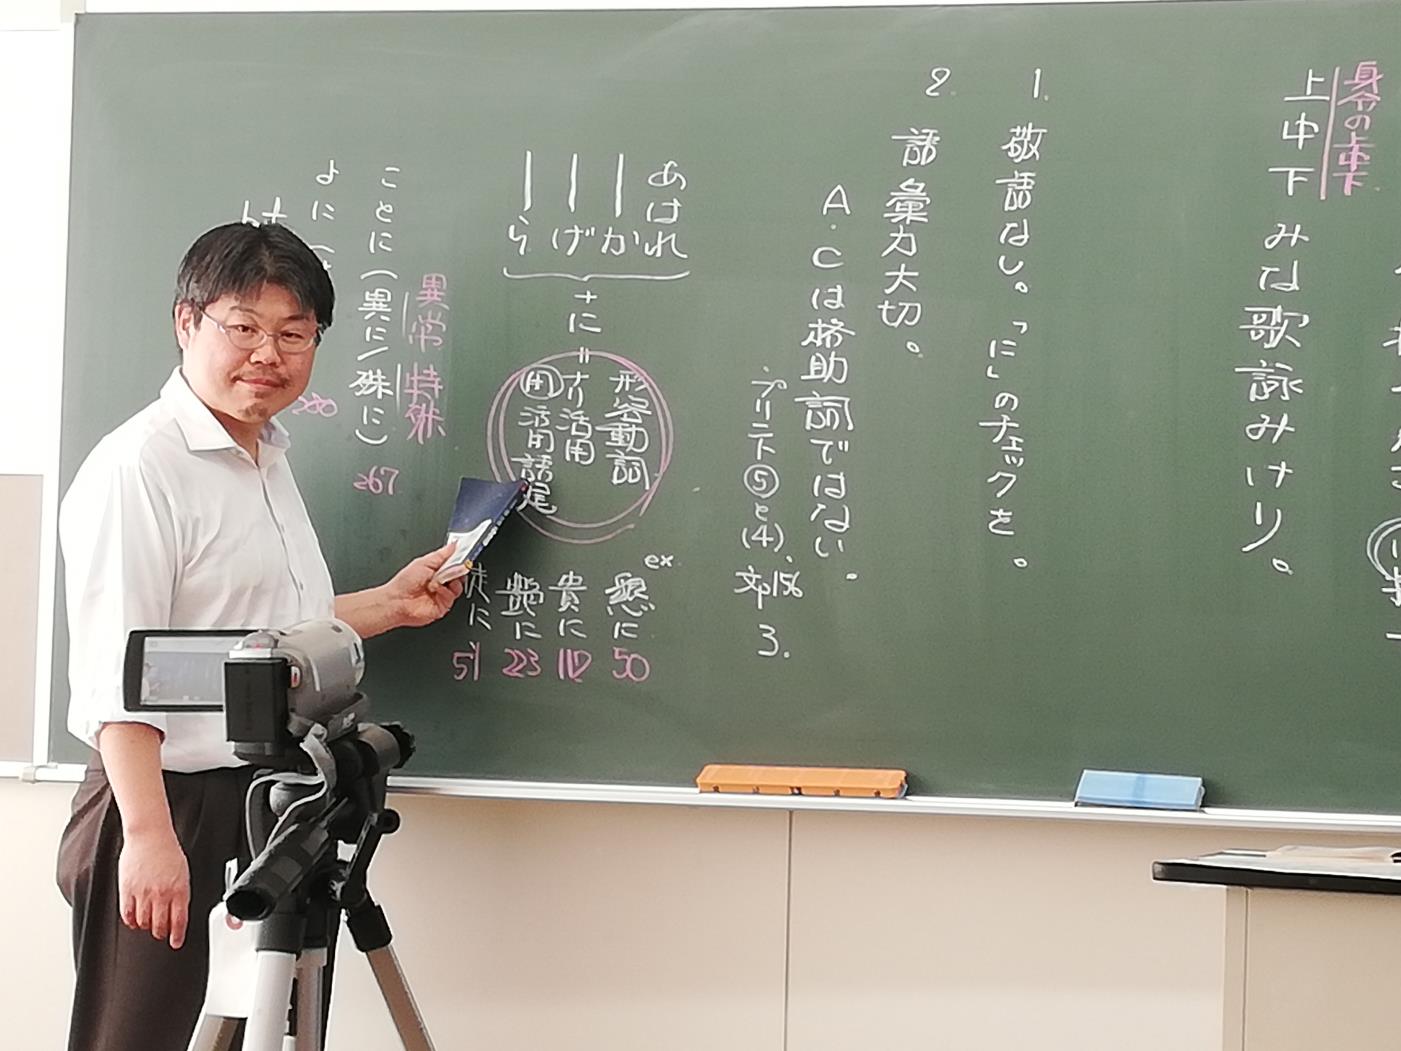 身分の上中下
上中下みな歌詠みけり。
1. 敬語なし。「に」のチェックを。
2. 語彙力大切。
A.Cは格助詞ではない。
プリント⑤と(4)、
文p156
3.
あはれ
ーか
ーげ
ーら
+に
=
形容動詞
ナリ活用
用活用語尾
ex
懇に
50
貴に
112
艶に
223
徒に
51
異常 特殊
ことに(異に/殊に)
267
よに(
280